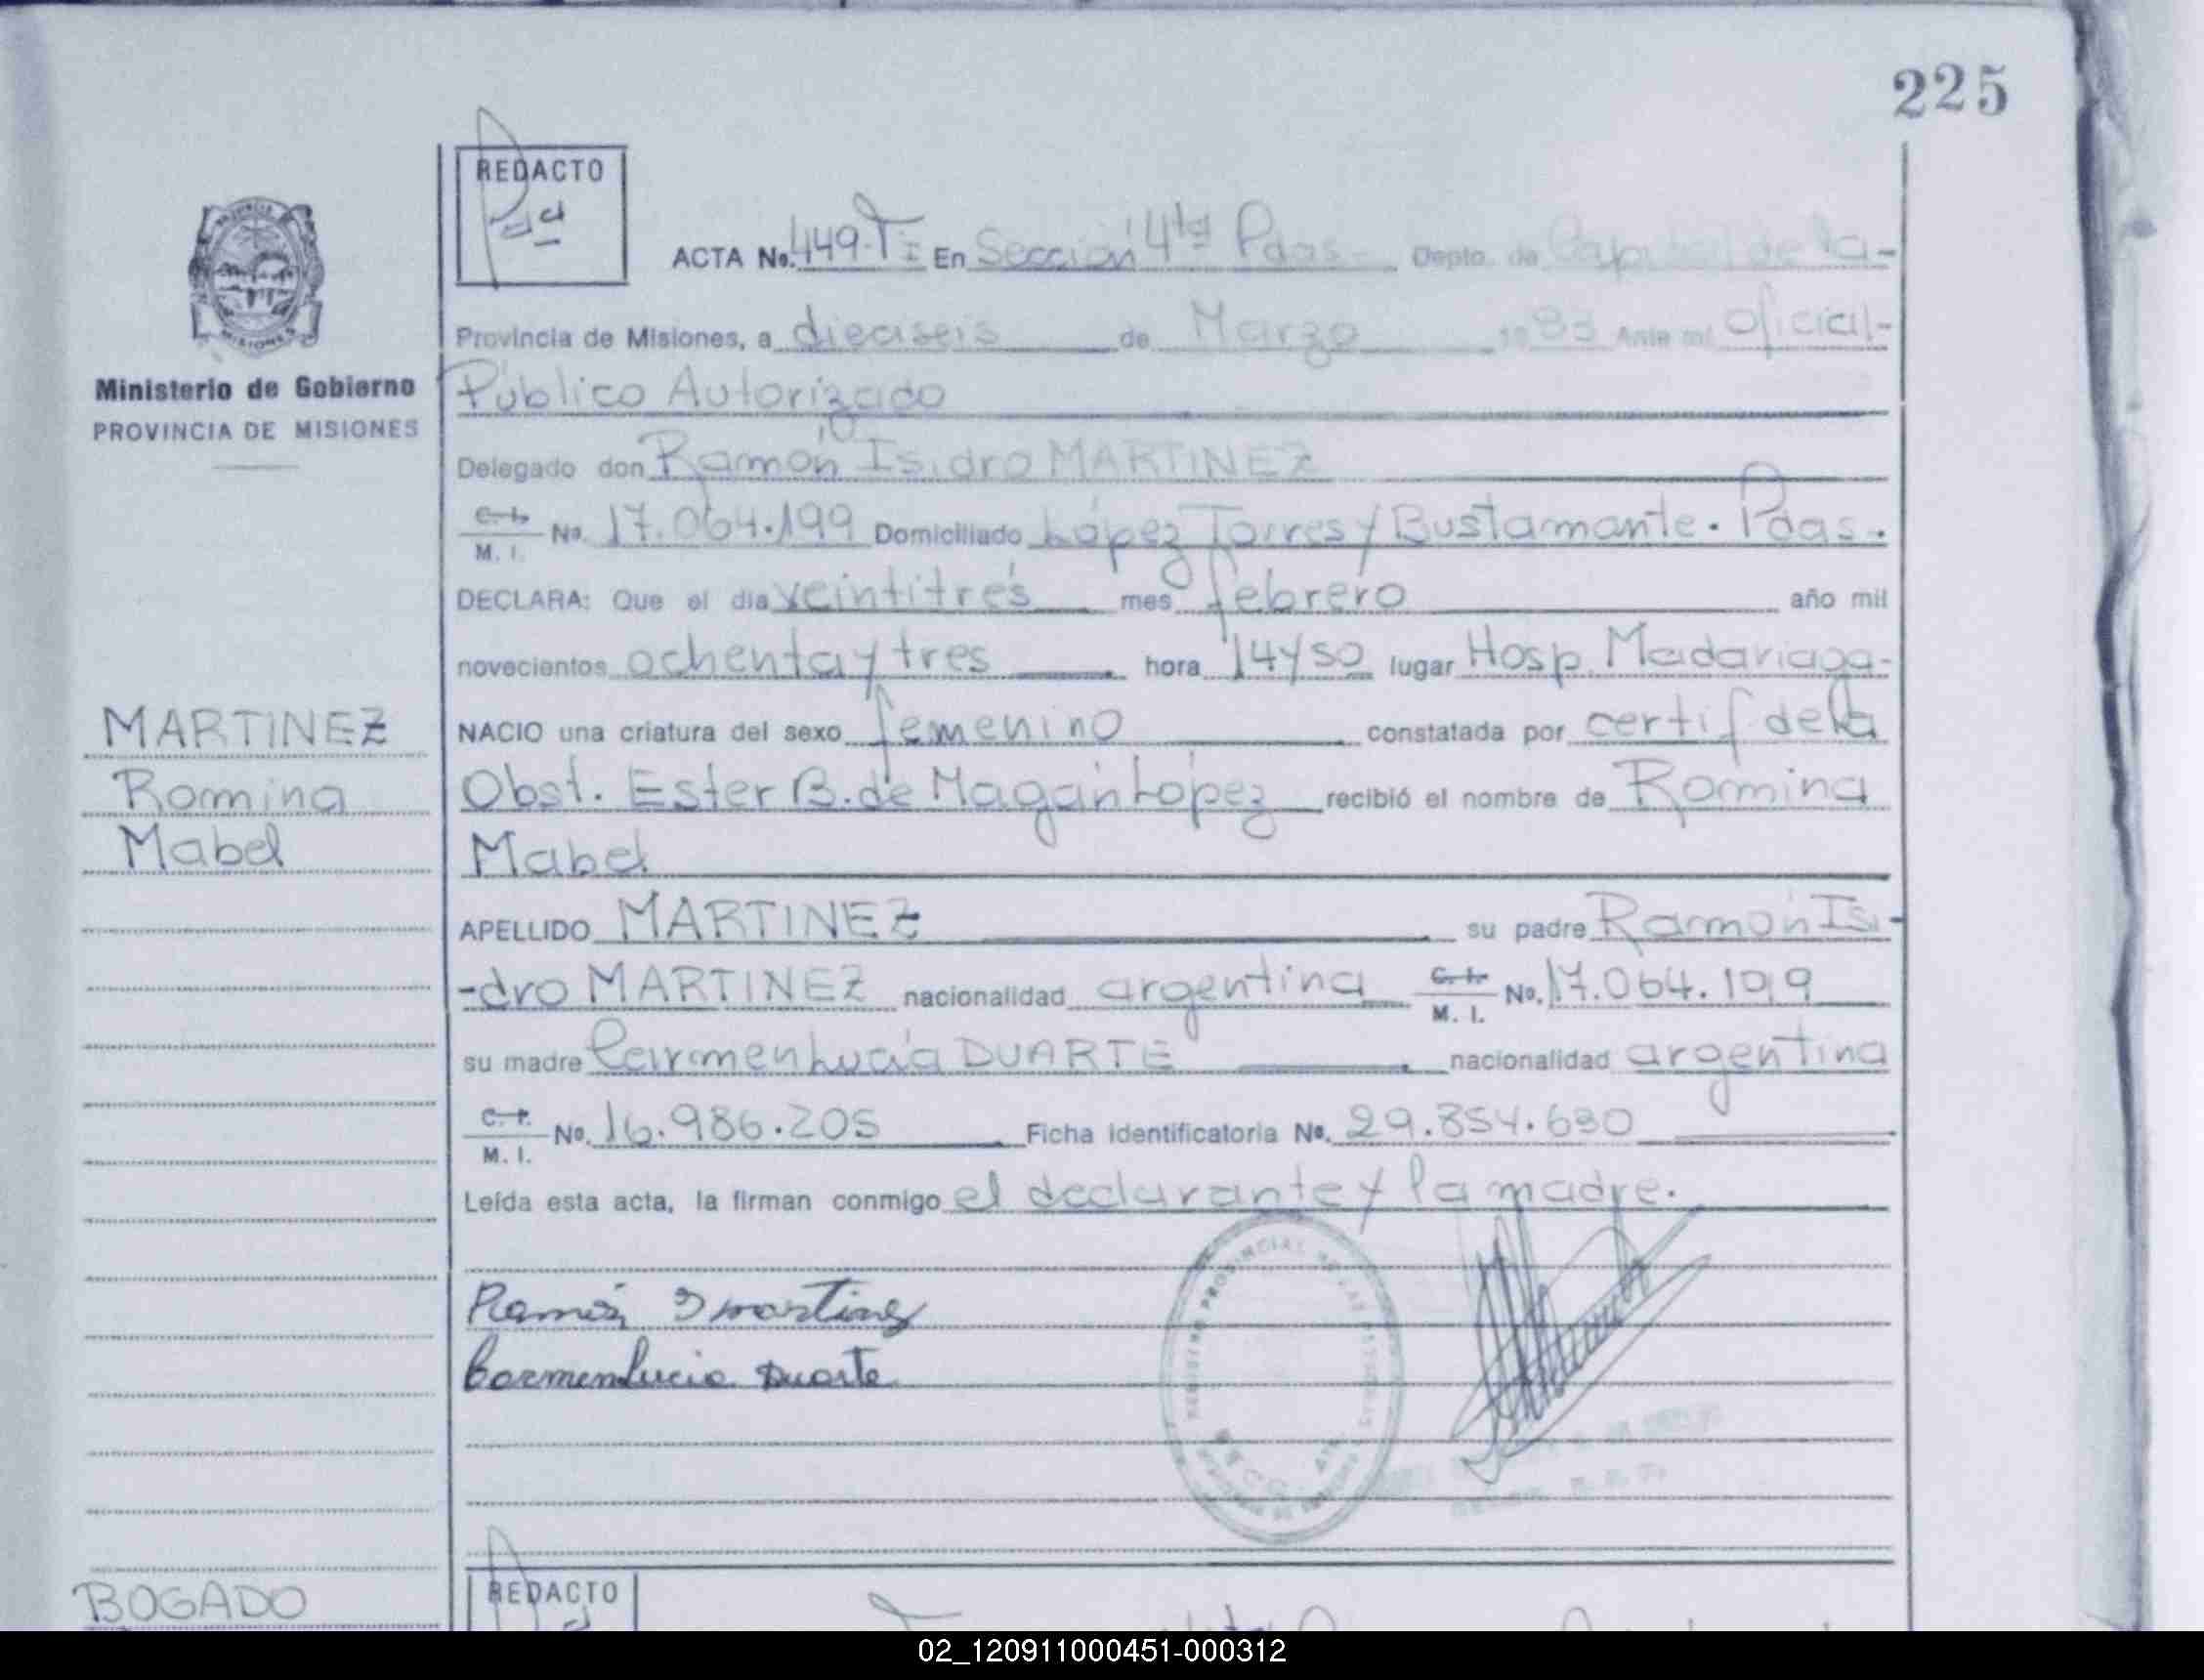 225
REDACTO
ACTA No. 449-TI En Sección 4ta Pdas- Depto. de Capital de la-
Provincia de Misiones, a dieciseis de Marzo 1983 Ante mi Oficial-
Ministerio de Gobierno
PROVINCIA DE MISIONES
Público Autorizado
Delegado don Ramón Isidro MARTINEZ
C. I. M. I. No. 17.064.199 Domiciliado López Torres y Bustamante. Pdas.
DECLARA: Que el día veintitrés mes febrero año mil
novecientos ochenta y tres hora 14 y 50 lugar Hosp. Madariaga-
MARTINEZ
NACIO una criatura del sexo femenino constatada por certif de la
Romina
Obst. Ester B. de Magán López recibió el nombre de Romina
Mabel
Mabel
APELLIDO MARTINEZ su padre Ramón Isi-
-dro MARTINEZ nacionalidad argentina C. I. M. I. No. 17.064.199
su madre Carmen Lucía DUARTE nacionalidad argentina
C. I. M. I. No. 16.986.205 Ficha Identificatoria No. 29.854.630
Leída esta acta, la firman conmigo el declarante y la madre.
Ramón I martinez
Carmen Lucia Duarte
BOGADO
REDACTO
02_120911000451-000312